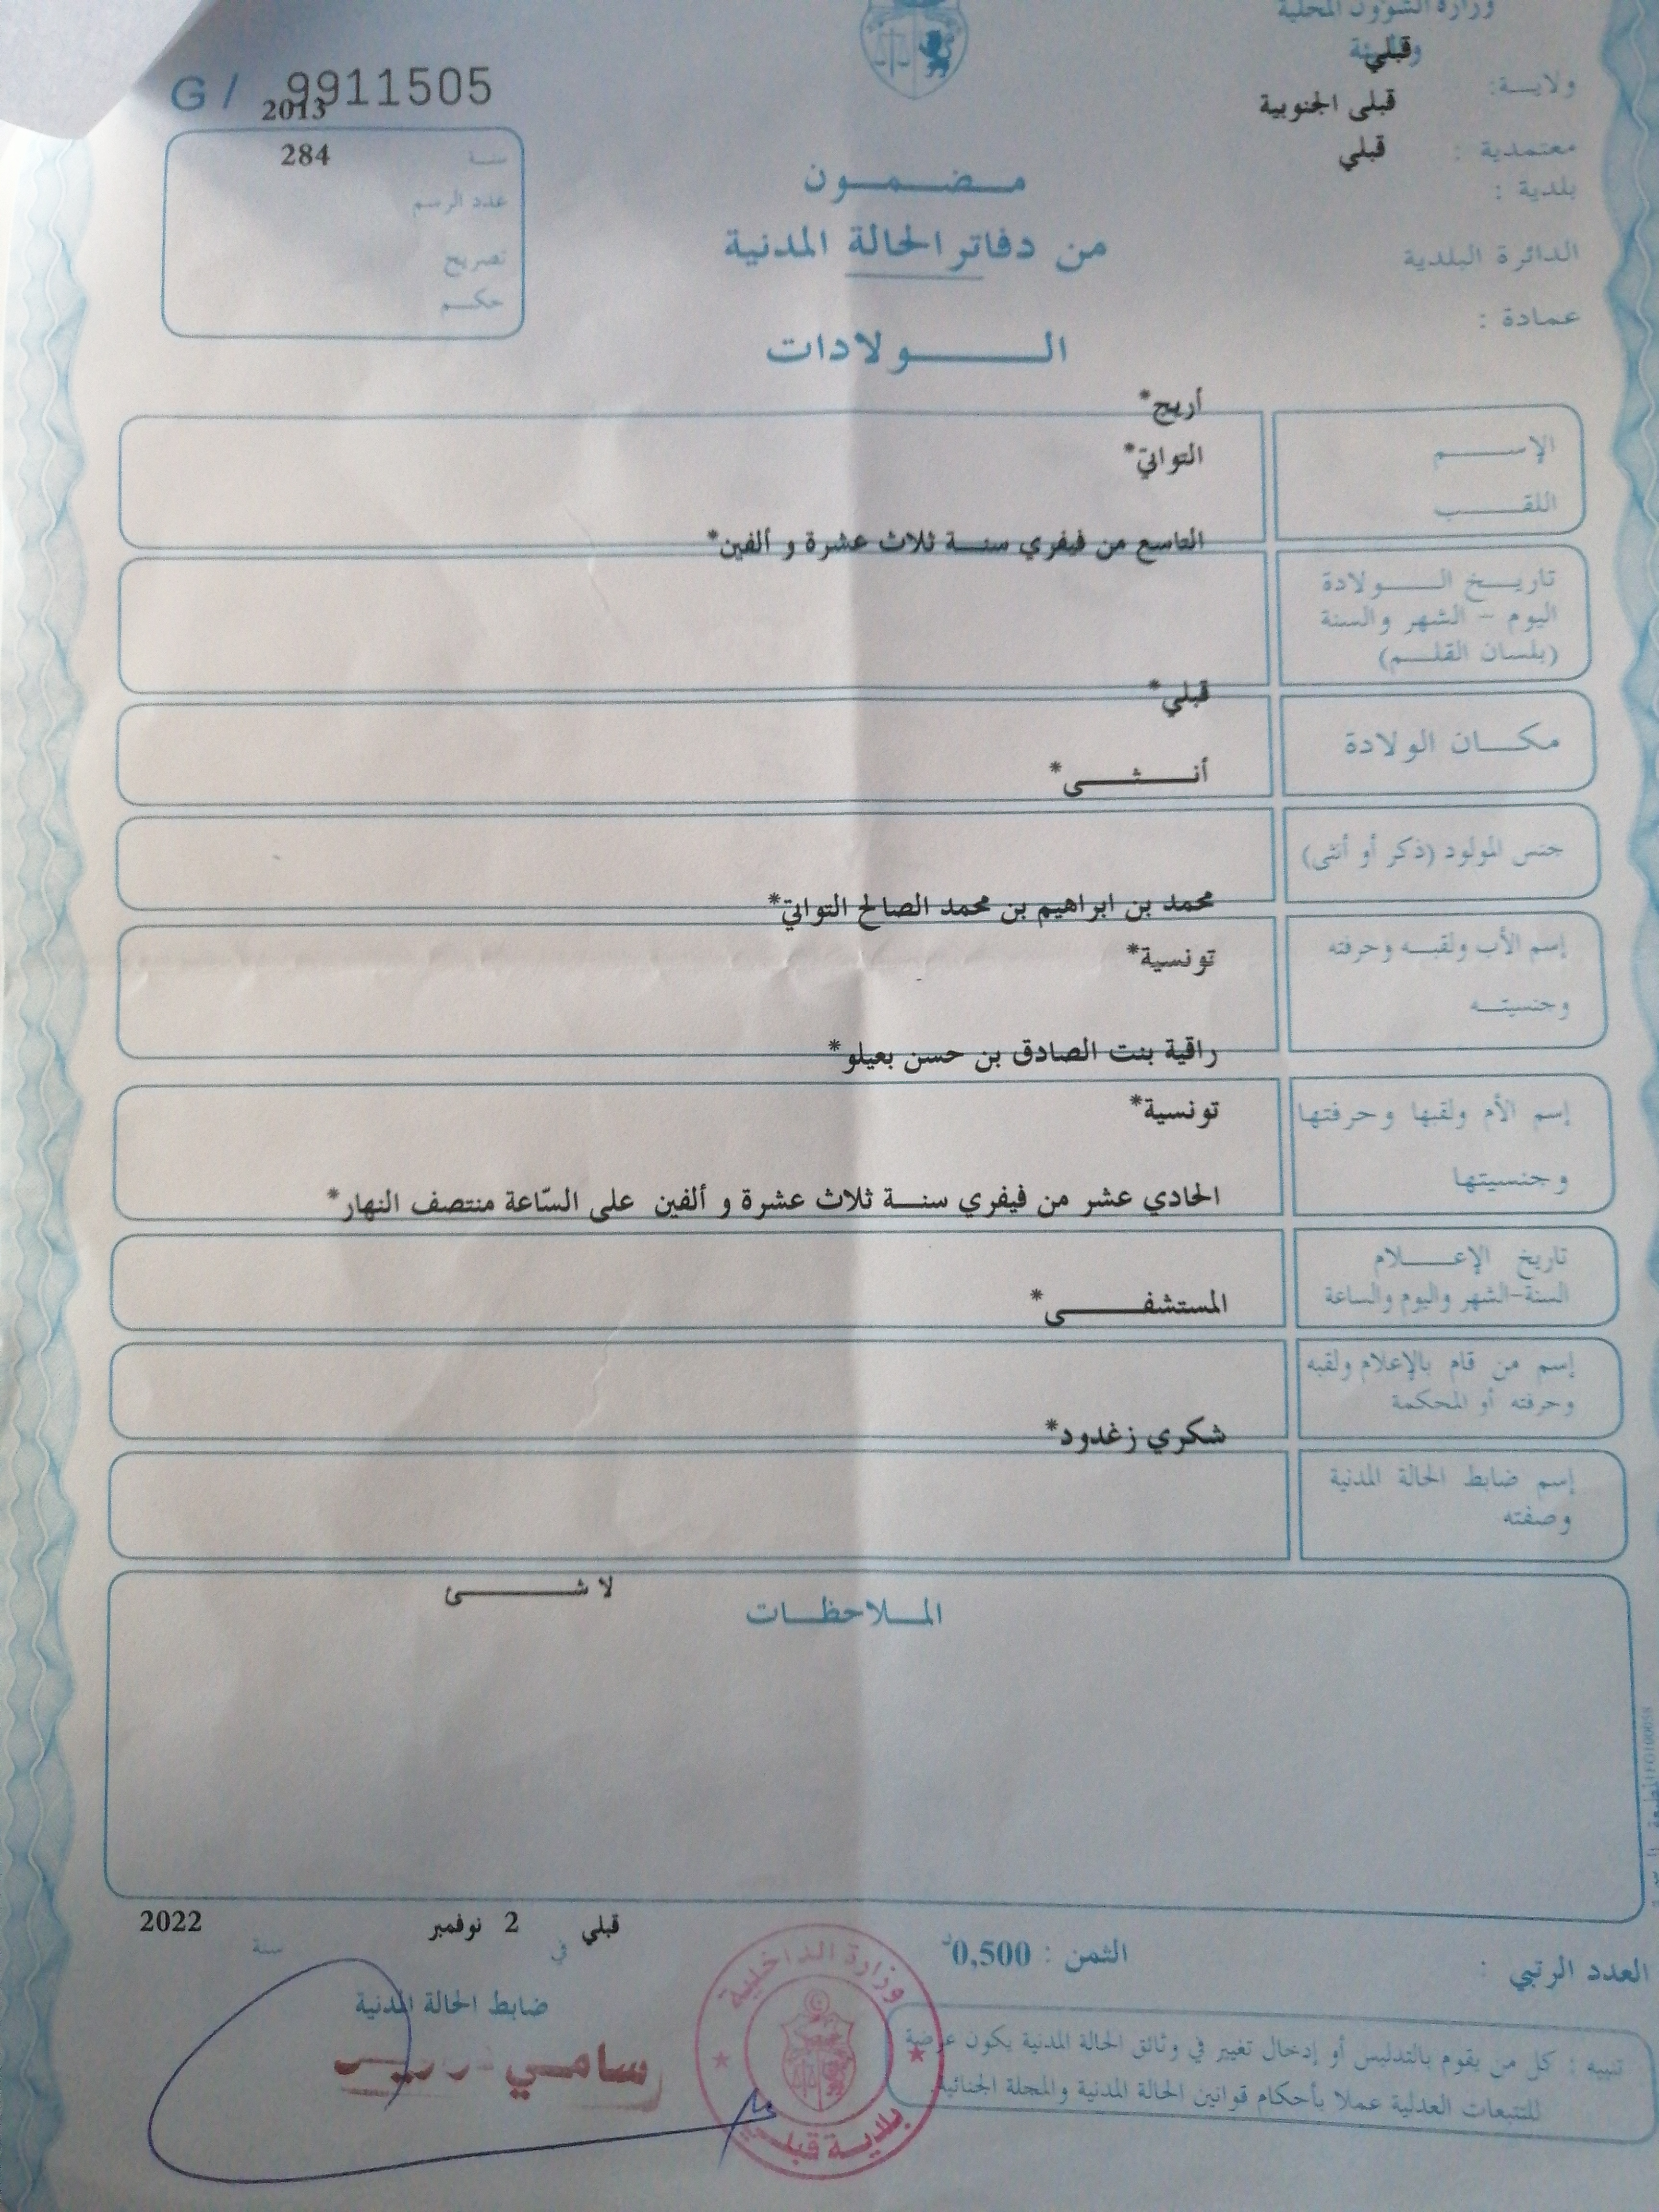 وزارة الشؤون المحلية
والبيئة
قبلي
ولايـــة:
قبلى الجنوبية
معتمدية :
قبلي
بلدية :
الدائرة البلدية
عمادة :
G / 9911505
2013
سنـة
284
عدد الرسم
تصريح
حكـــم
مـــضـــمـــون
من دفاتر الحالة المدنية
الـــــولادات
أريج*
الإســـــم
التواتي*
اللقـــــب
التاسع من فيفري سنـــة ثلاث عشرة و ألفين*
تاريـــخ الـــــولادة
اليوم – الشهر والسنة
(بلسان القلـــم)
قبلي*
مكـــان الولادة
أنـــــثـــــى*
جنس المولود (ذكر أو أنثى)
محمد بن ابراهيم بن محمد الصالح التواتي*
إسم الأب ولقبـــه وحرفته
تونسية*
وجنسيتـــه
راقية بنت الصادق بن حسن بعيلو*
إسم الأم ولقبها وحرفتها
تونسية*
وجنسيتها
الحادي عشر من فيفري سنـــة ثلاث عشرة و ألفين على السّاعة منتصف النهار*
تاريخ الإعـــــلام
السنة-الشهر واليوم والساعة
المستشفـــــى*
إسم من قام بالإعلام ولقبه
وحرفته أو المحكمة
شكري زغدود*
إسم ضابط الحالة المدنية
وصفته
لا شـــــئ
المـــلاحظـــات
قبلي في 2 نوفمبر سنة 2022
ضابط الحالة المدنية
سامي
وزارة الداخلية
بلدية قبلي
الثمن : 0,500د
العدد الرتبي :
تنبيه : كل من يقوم بالتدليس أو إدخال تغيير في وثائق الحالة المدنية يكون عرضة
للتتبعات العدلية عملا بأحكام قوانين الحالة المدنية والمجلة الجنائية.